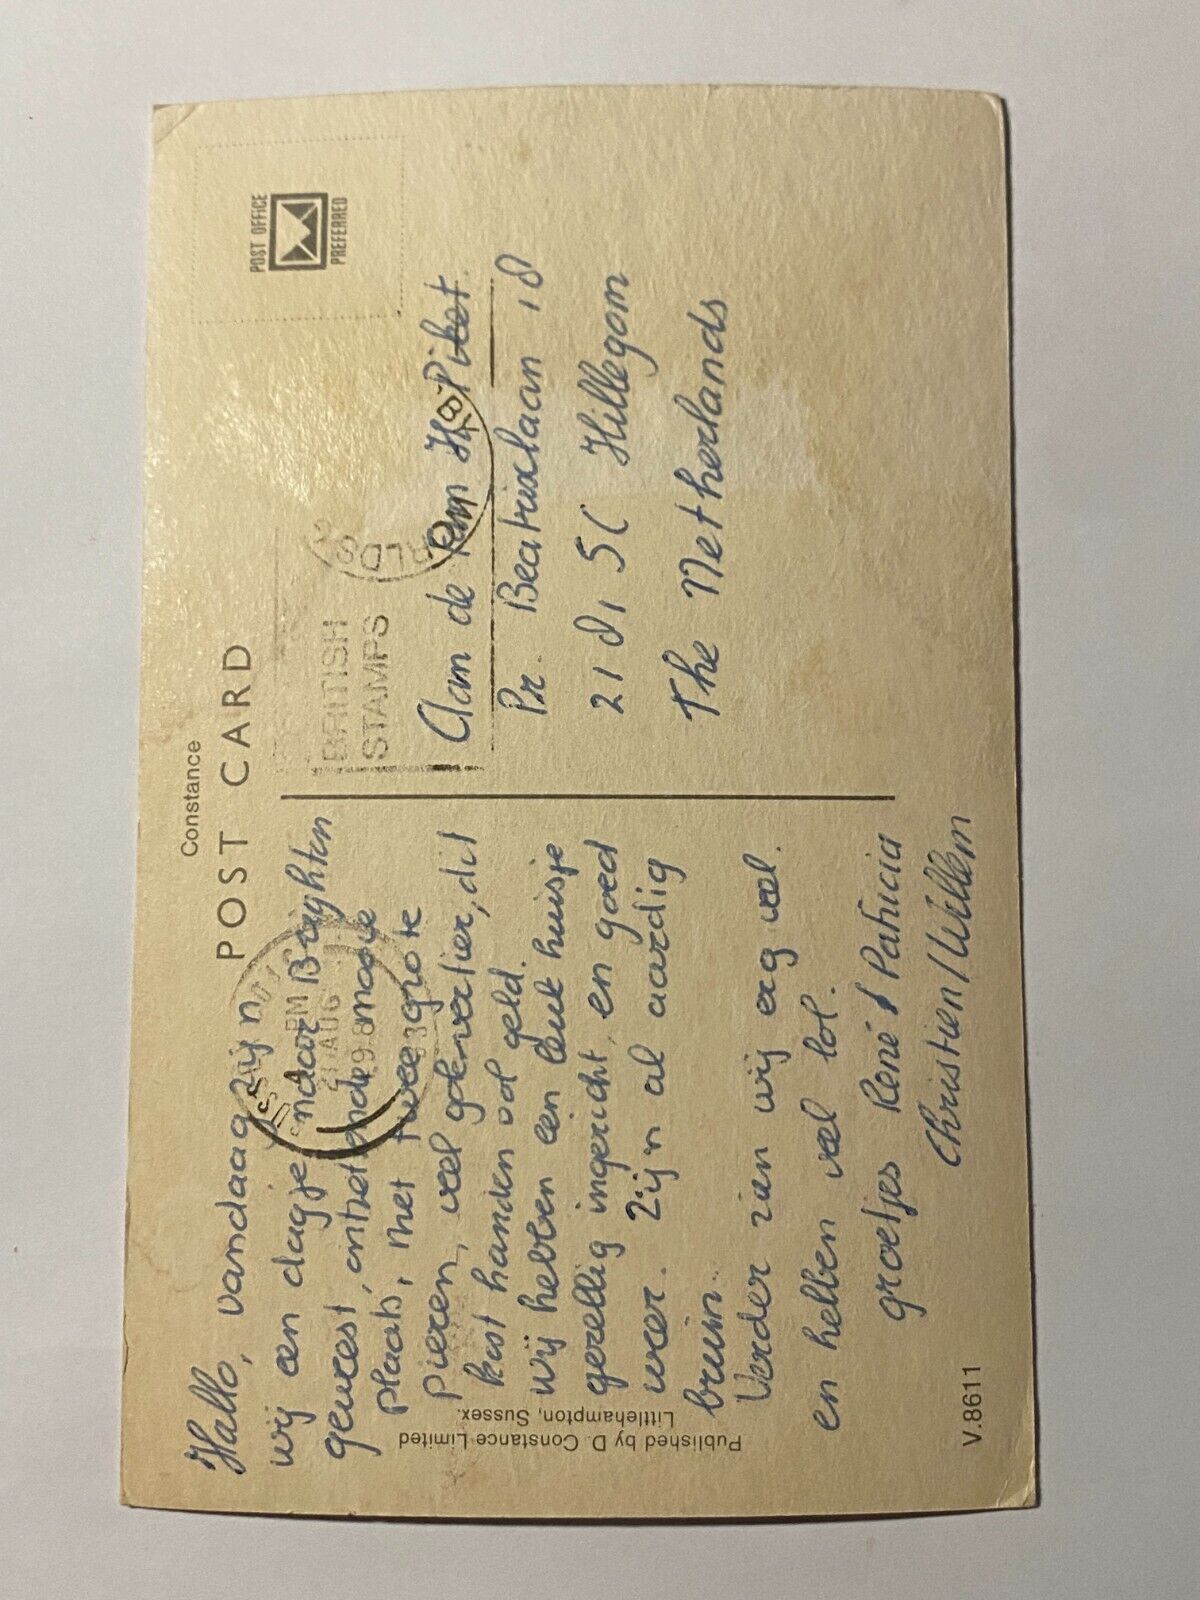 Constance
POST CARD
POST OFFICE
PREFERRED
BRITISH
STAMPS
PM
21 AUG
198
Hallo, vandaag zijn
wij een dagje naar Brighten
geweest, ontzettende mooie
plaats, met twee grote
pieren, veel vertier, dit
kost handen vol geld.
wij hebben een leuk huisje
gezellig ingericht, en goed
weer. Zijn al aardig
bruin.
Verder zien wij erg veel
en hebben veel lol.
groetjes René / Patricia
Christien / Willem
Aan de Fam H. Piket.
Pr. Beatrixlaan 18
2181 SC Hillegom
The Netherlands
Published by D. Constance Limited
Littlehampton, Sussex.
V.8611